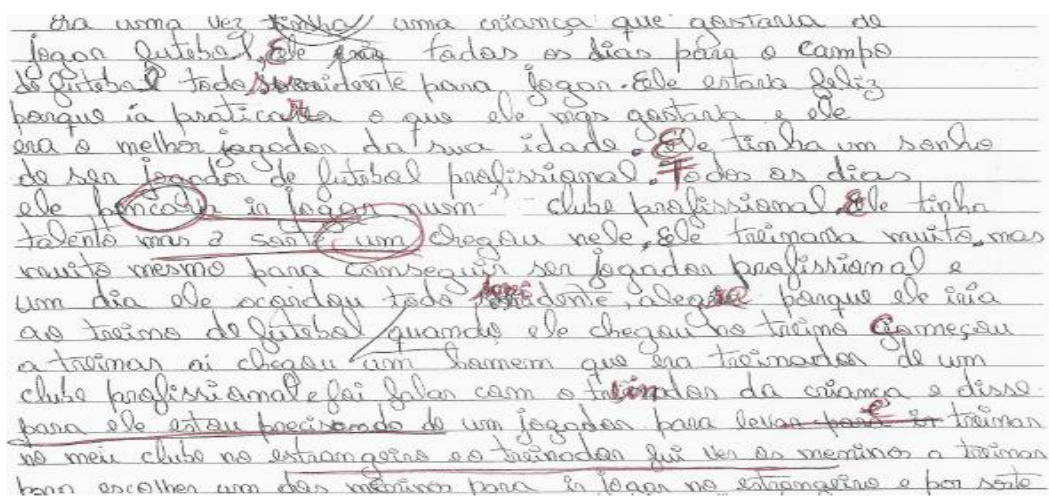 Era uma vez tinha uma criança que gostaria de
jogar futebol, Ele todos os dias para o campo
de futebol todo sorridente para jogar. Ele estava feliz
porque ia praticar o que ele mas gostava e ele
era o melhor jogador da sua idade. Ele tinha um sonho
de ser jogador de futebol profissional. Todos os dias
ele ir jogar num clube profissional. Ele tinha
talento mas a sorte um chegou nele, Ele treinava muito, mas
muito mesmo para conseguir ser jogador profissional e
um dia ele acordou todo sorridente, alegre porque ele iria
ao treino de futebol quando ele chegou no treino Começou
a treinar ai chegou um homem que era treinador de um
clube profissional e foi falar com o treinador da criança e disse
para ele estou precisando de um jogador para levar para ir treinar
no meu clube no estrangeiro e o treinador fui ver os meninos a treinar
para escolher um dos meninos para ir jogar no estrangeiro e por sorte